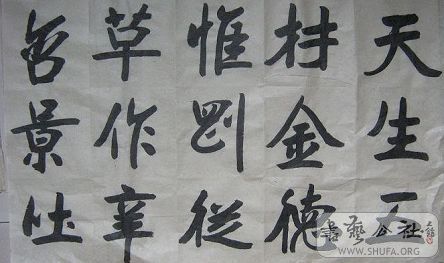 天生五
材金德
惟剛從
草作辛
含景吐
書藝公社
WWW.SHUFA.ORG